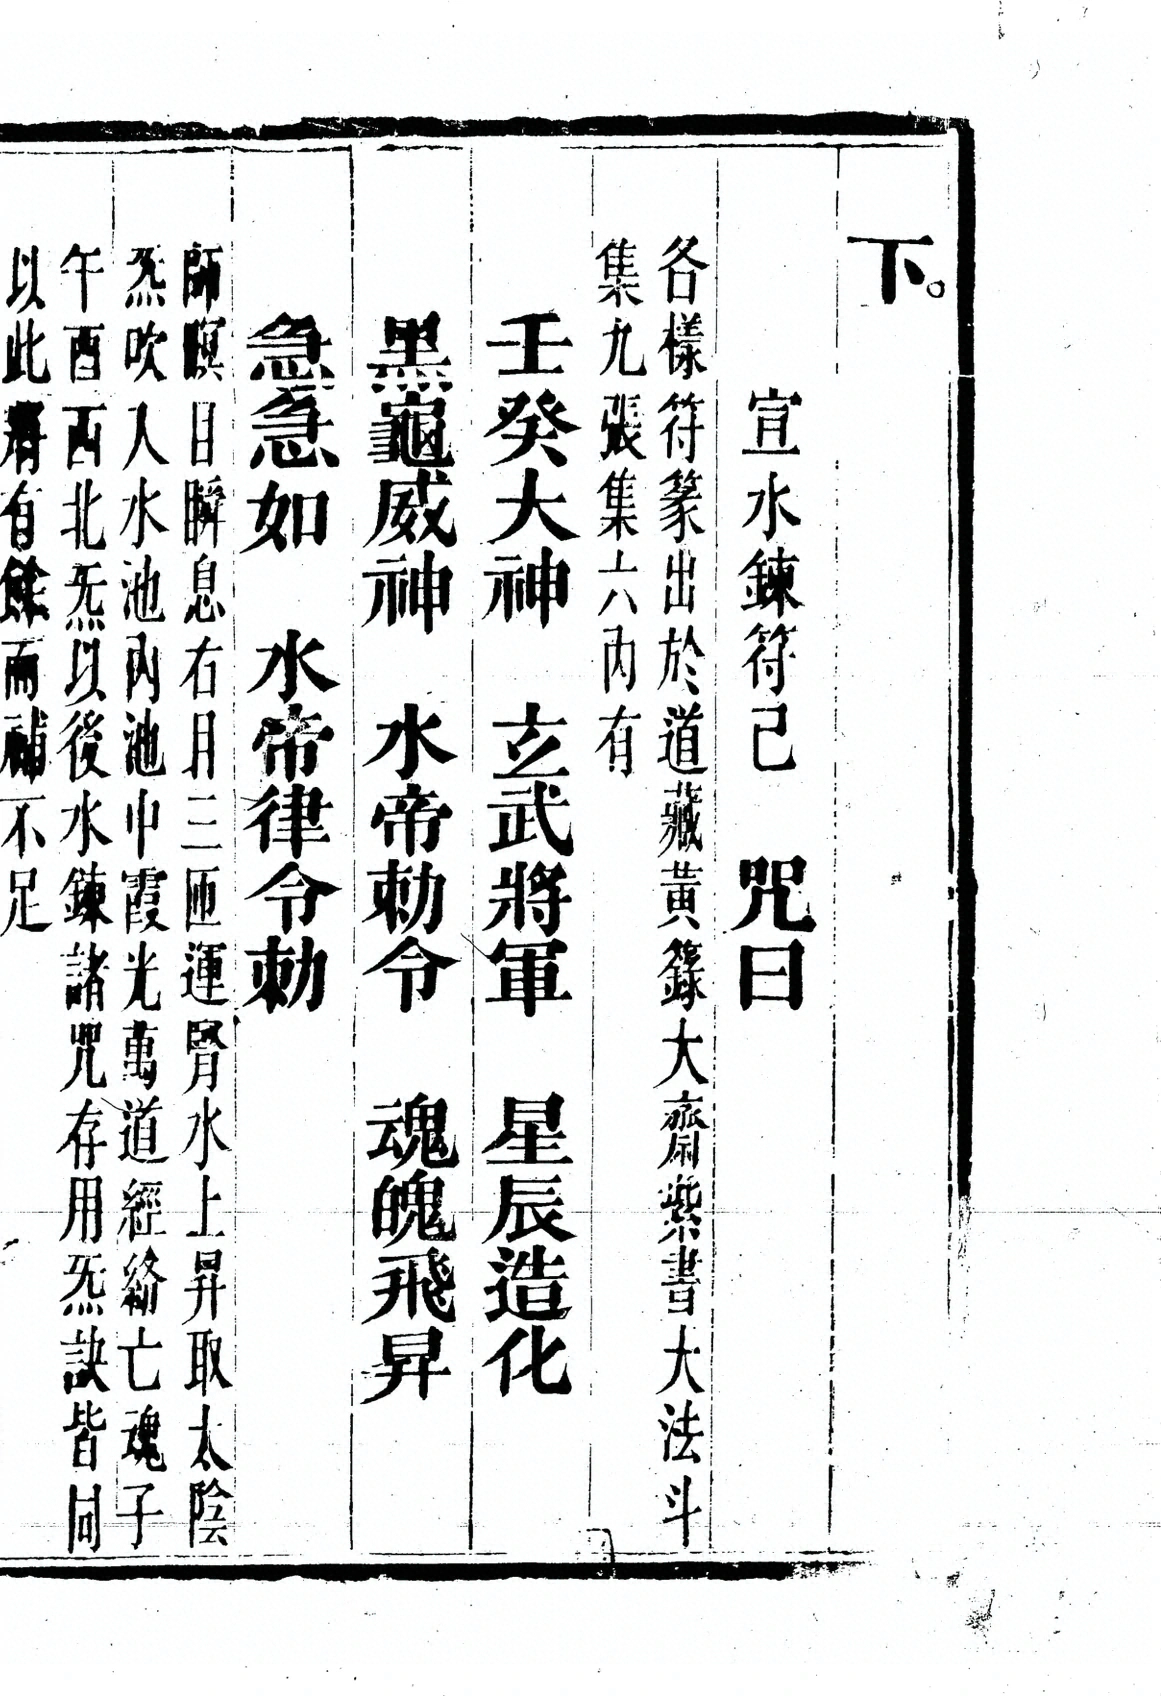 下。
宣水鍊符已　咒曰
各樣符篆出於道藏黃籙大齋紫書大法斗
集九張集六內有
壬癸大神　玄武將軍　星辰造化
黑龜威神　水帝勅令　魂魄飛昇
急急如　水帝律令勅
師瞑目瞬息右目三匝運腎水上昇取太陰
炁吹入水池內池中霞光萬道經絡亡魂子
午酉西北炁以後水鍊諸咒存用炁訣皆同
以此 有餘而補不足